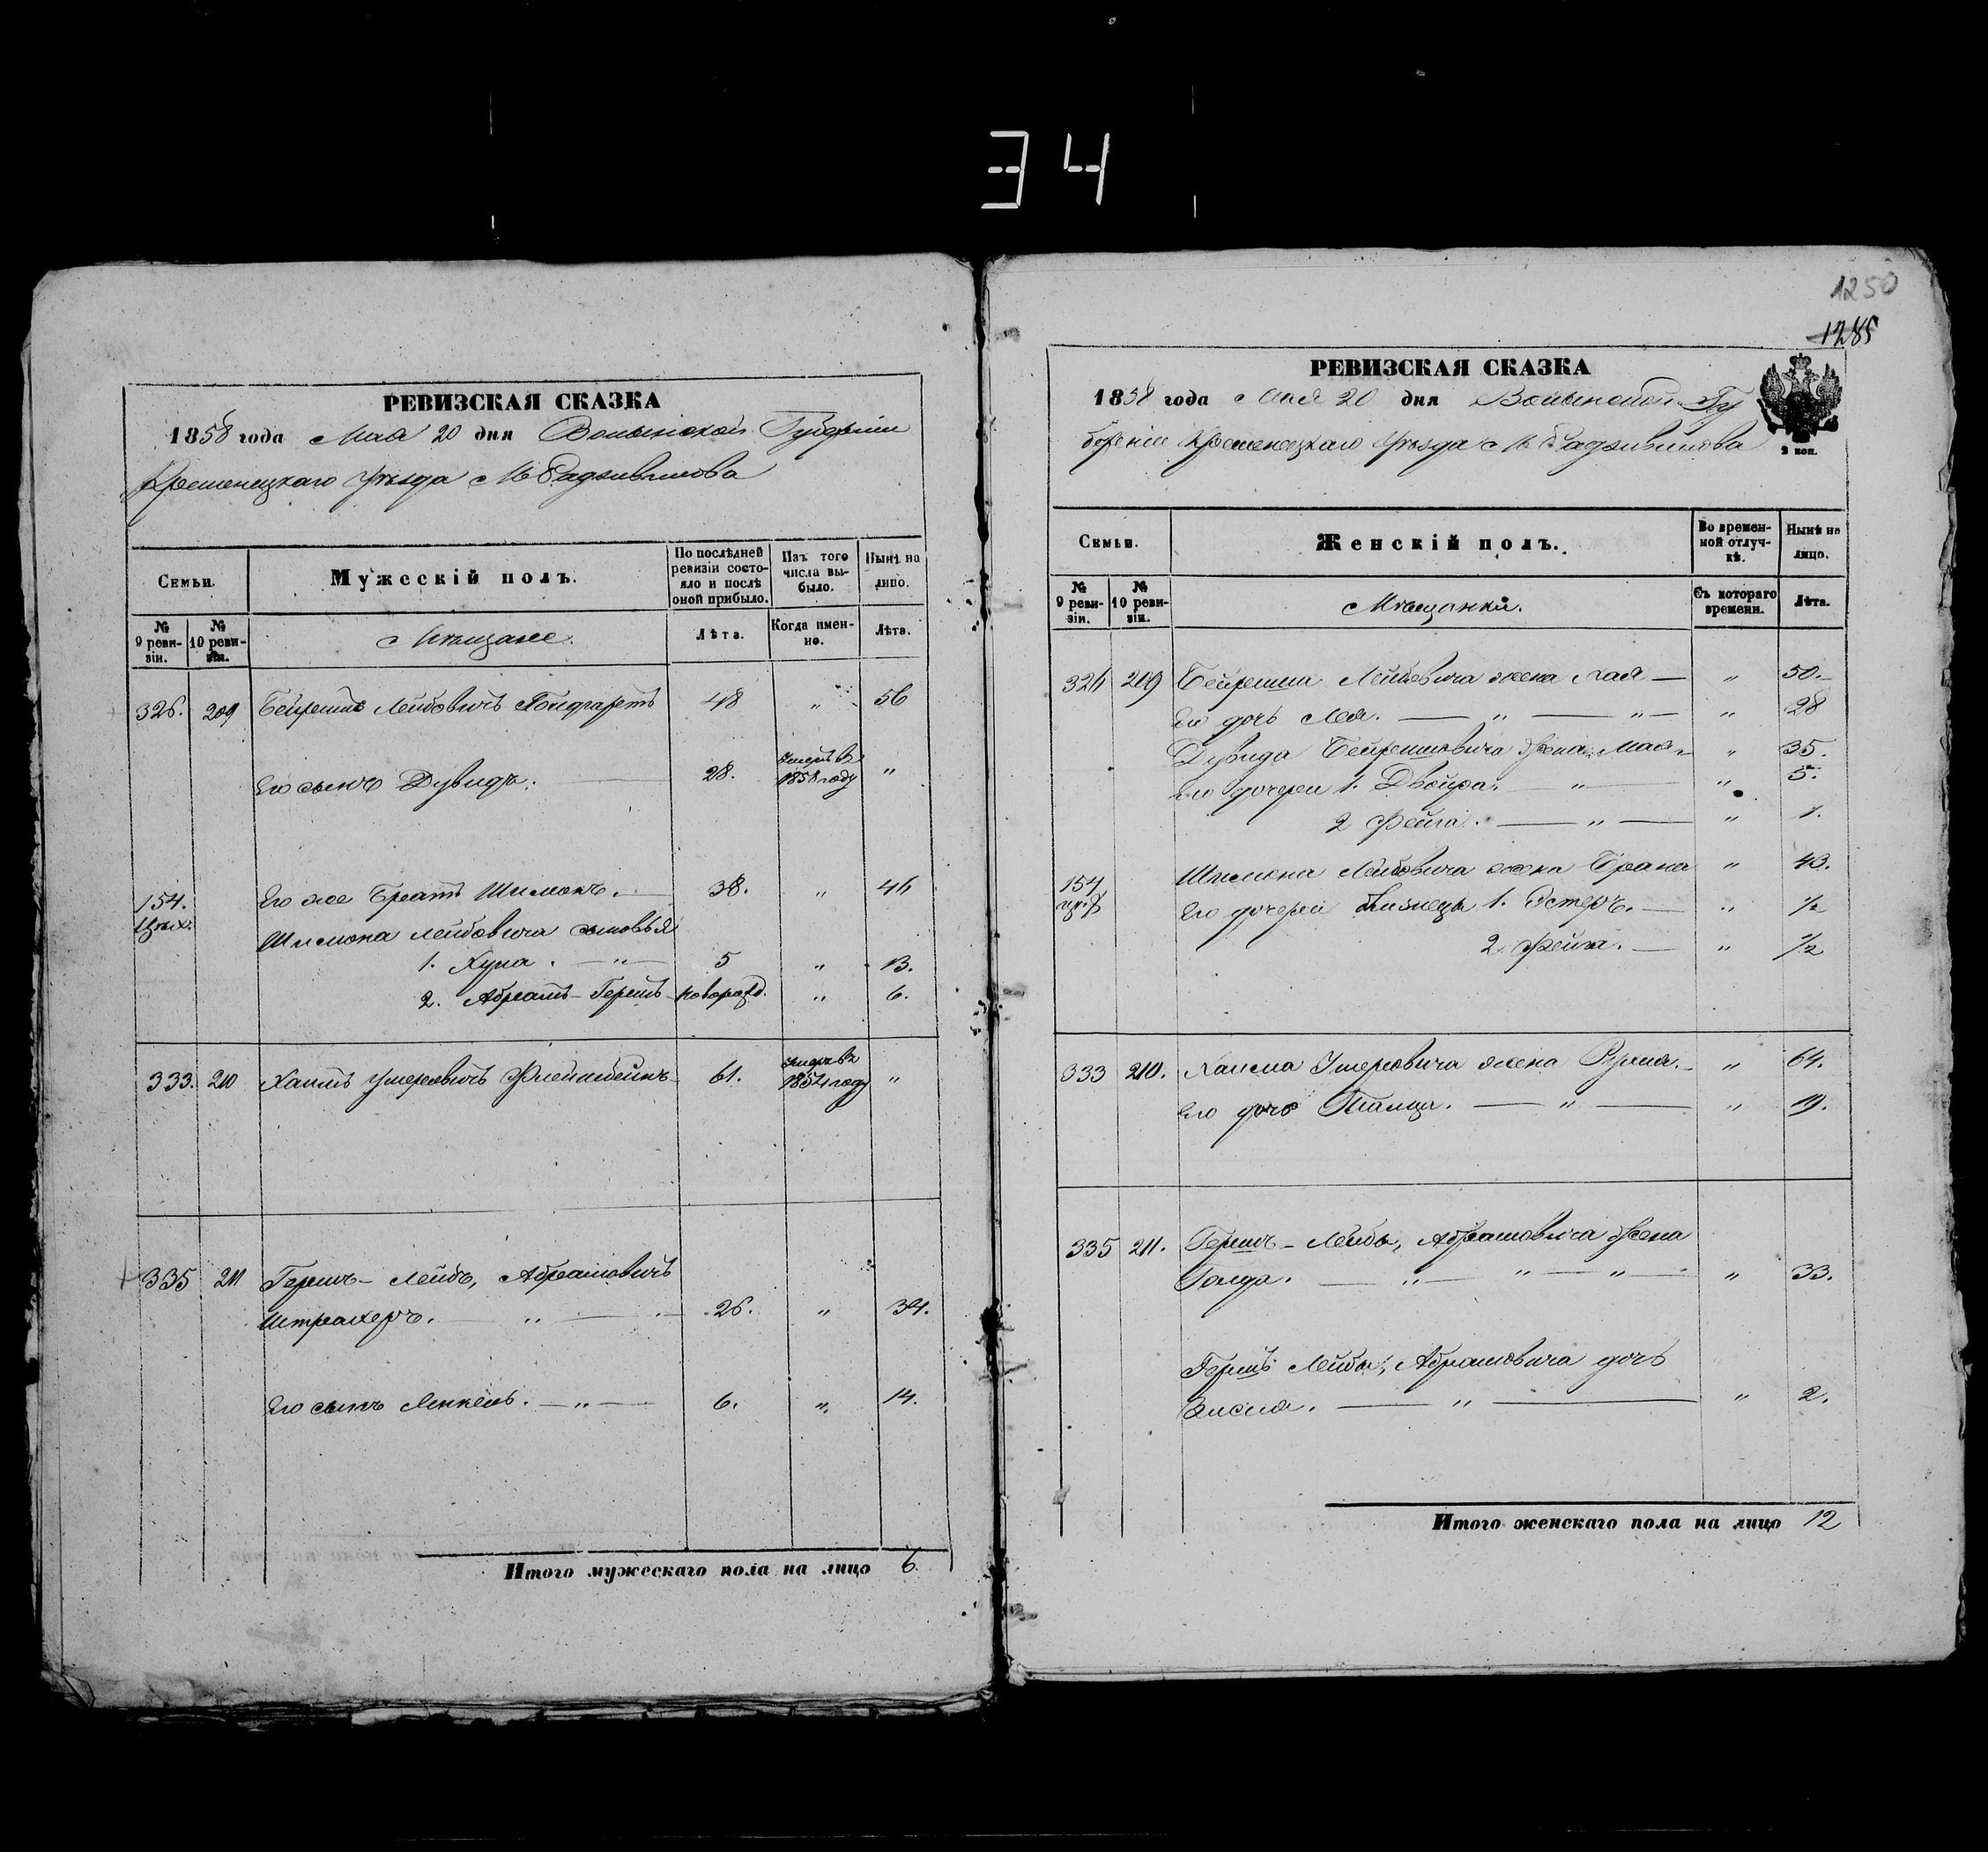 34
РЕВИЗСКАЯ СКАЗКА
1858 года Мая 20 дня Волынской Губерніи
Кременецкаго Уѣзда М Радзивилова
Семьи.
Мужескій полъ.
По послѣдней ревизіи состояло и послѣ оной прибыло.
Изъ того числа выбыло.
Нынѣ на лицо.
№ 9 ревизіи.
№ 10 ревизіи.
Мѣщане.
Лѣта.
Когда именно.
Лѣта.
326. 209 Бейришъ Лейбовичъ 48 " 56
Его сынъ Дувидъ. 28. Умеръ въ 1858 году "
154. Его же Братъ Шимонъ. 38. " 46
Цѣх. Шимона Лейбовича сыновья
1. Хуна. " 5 " 13.
2. Абрамъ-Гершъ новорожд. " 6.
333. 210 Хаимъ Умеровичъ 61. умеръ въ 1854 году "
335 211 Гершъ-Лейбъ, Абрамовичъ
Штрахеръ. " 26. " 34.
Его сынъ Янкель. " 6. " 14.
Итого мужескаго пола на лицо 6.
1250
1285
РЕВИЗСКАЯ СКАЗКА
1858 года Мая 20 дня Волынской Гу
берніи Кременецкаго Уѣзда М Радзивилова
2 коп.
Семьи.
Женскій полъ.
Во временной отлучкѣ.
Нынѣ на лицо.
№ 9 ревизіи.
№ 10 ревизіи.
Мѣщанки.
Съ котораго времени.
Лѣта.
326 209 Бейриша Лейбовича жена Хая " 50.
Его дочь Лея. " " " 28
Дувида Бейришовича Жена Мая " 35.
Его дочери 1. Двойра. " " 5.
2 Фейга. " " 1.
154 Шимона Лейбовича жена Брана " 43.
Его дочерей близнецы 1. Эстеръ. " 1/2
2. Фейга. " 1/2
333 210. Хаима Умеровича жена Рухля. " 64.
Его дочь " " 19.
335 211. Гершъ-Лейбы, Абрамовича Жена
Голда. " " " " 33.
Гершъ Лейбы, Абрамовича дочь
" " 2.
Итого женскаго пола на лицо 12